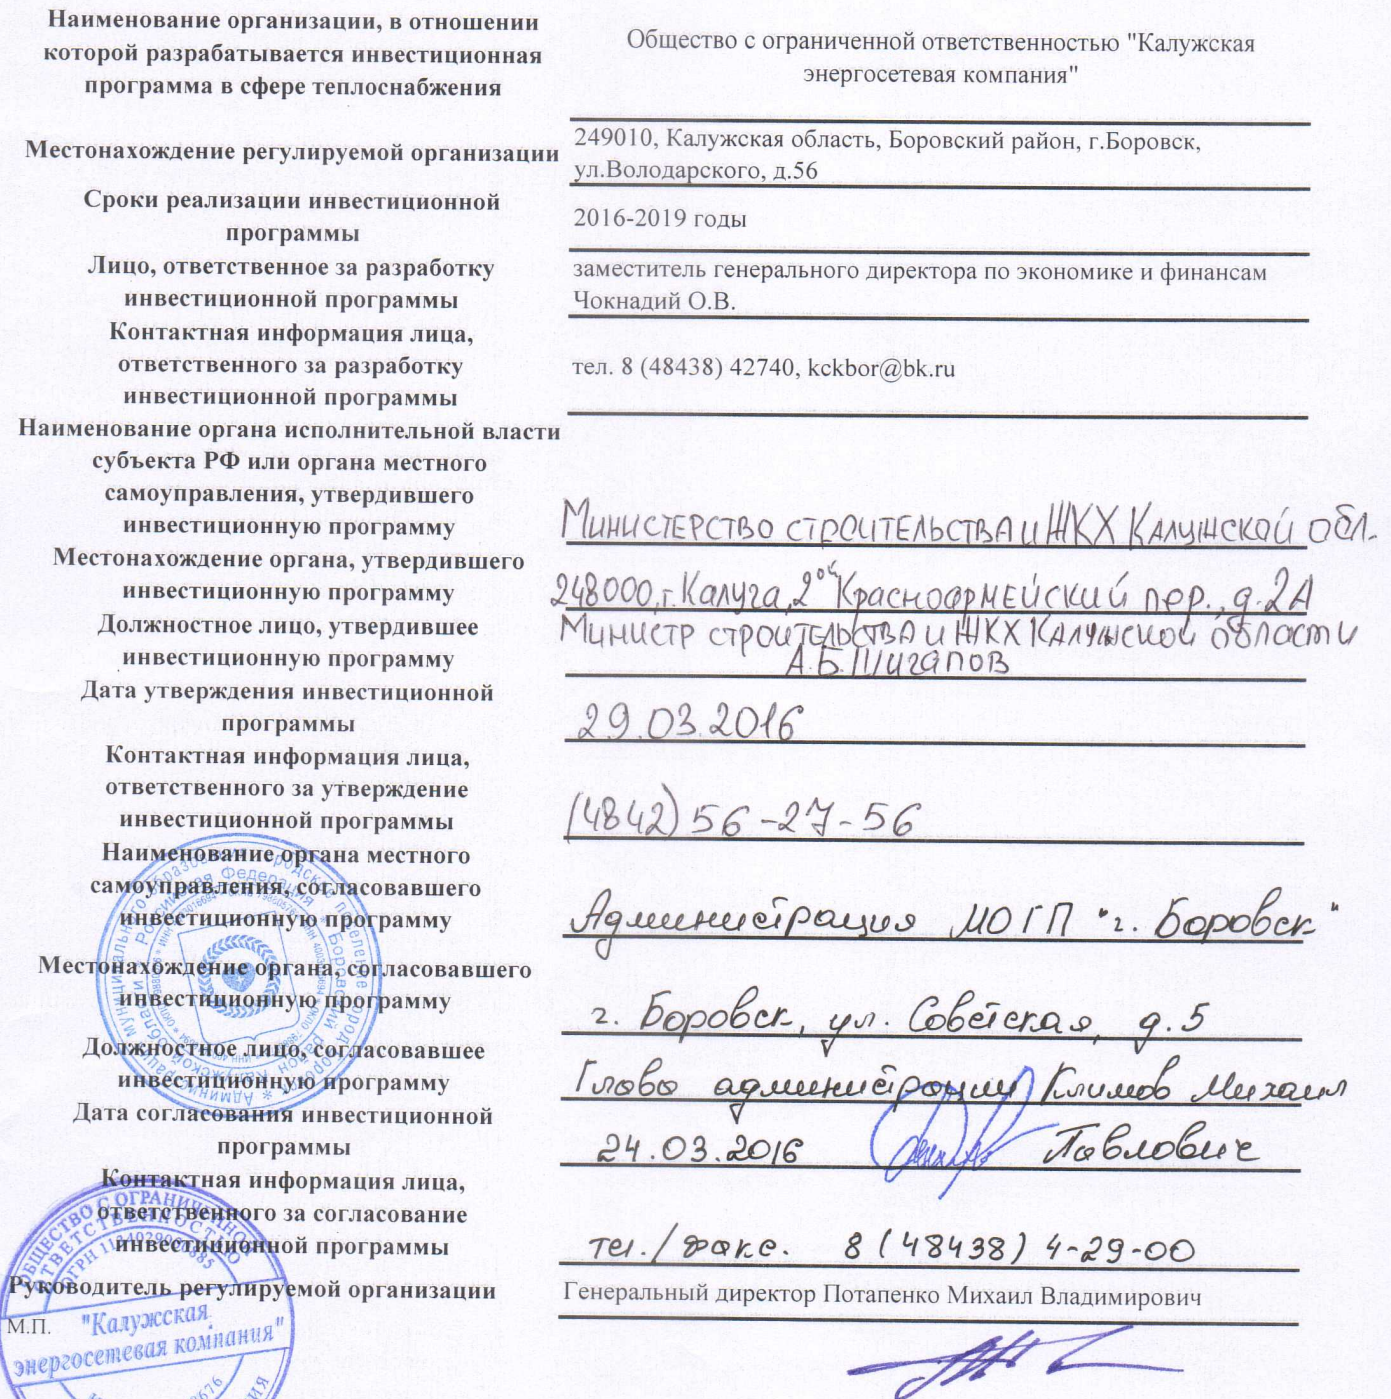 Наименование организации, в отношении
которой разрабатывается инвестиционная
программа в сфере теплоснабжения
Общество с ограниченной ответственностью "Калужская
энергосетевая компания"
Местонахождение регулируемой организации
249010, Калужская область, Боровский район, г.Боровск,
ул.Володарского, д.56
Сроки реализации инвестиционной
программы
2016-2019 годы
Лицо, ответственное за разработку
инвестиционной программы
заместитель генерального директора по экономике и финансам
Чокнадий О.В.
Контактная информация лица,
ответственного за разработку
инвестиционной программы
тел. 8 (48438) 42740, kckbor@bk.ru
Наименование органа исполнительной власти
субъекта РФ или органа местного
самоуправления, утвердившего
инвестиционную программу
Министерство строительства и ЖКХ Калужской обл.
Местонахождение органа, утвердившего
инвестиционную программу
248000, г. Калуга, 2ой Красноармейский пер., д. 2А
Должностное лицо, утвердившее
инвестиционную программу
Министр строительства и ЖКХ Калужской области
А.Б. Шигапов
Дата утверждения инвестиционной
программы
29.03.2016
Контактная информация лица,
ответственного за утверждение
инвестиционной программы
(4842) 56-27-56
Наименование органа местного
самоуправления, согласовавшего
инвестиционную программу
Администрация МО ГП "г. Боровск"
Местонахождение органа, согласовавшего
инвестиционную программу
г. Боровск, ул. Советская, д. 5
Должностное лицо, согласовавшее
инвестиционную программу
Глава администрации Климов Михаил
Павлович
Дата согласования инвестиционной
программы
24.03.2016
Контактная информация лица,
ответственного за согласование
инвестиционной программы
тел./факс. 8 (48438) 4-29-00
Руководитель регулируемой организации
Генеральный директор Потапенко Михаил Владимирович
М.П.
ОБЩЕСТВО С ОГРАНИЧЕННОЙ
ОТВЕТСТВЕННОСТЬЮ
"Калужская
энергосетевая компания"
Российская Федерация
Боровский район Калужской области